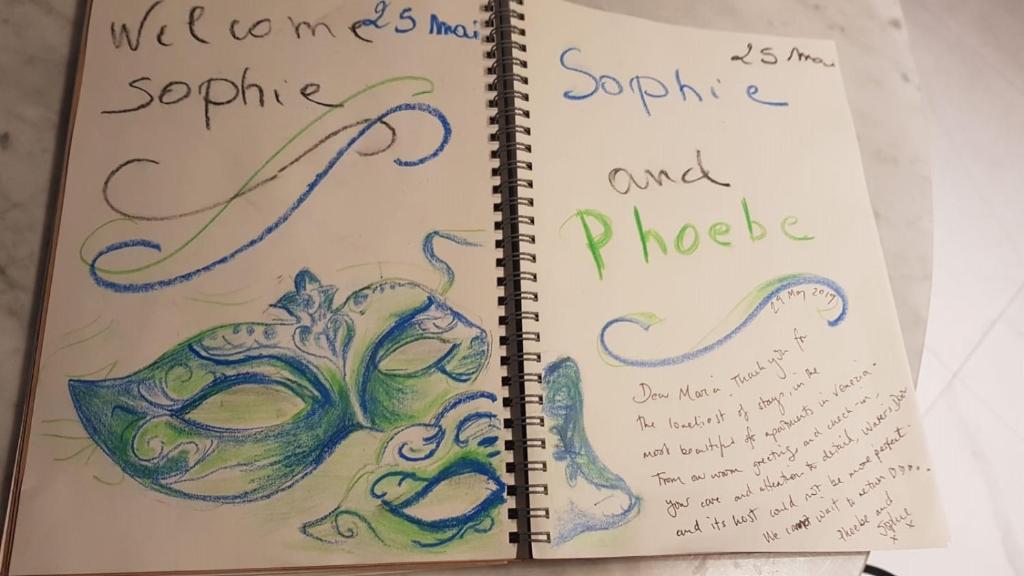 Welcome 25 Mai
Sophie
25 Ma
Sophie
and
Phoebe
29 May 2019
Dear Maria. Thank you for
the loveliest of stays, in the
most beautiful of apartments in Venezia.
From our warm greeting and check-in,
your care and attention to detail,
and its host could not be more perfect.
We cannot wait to return
Phoebe and
Sophie
x